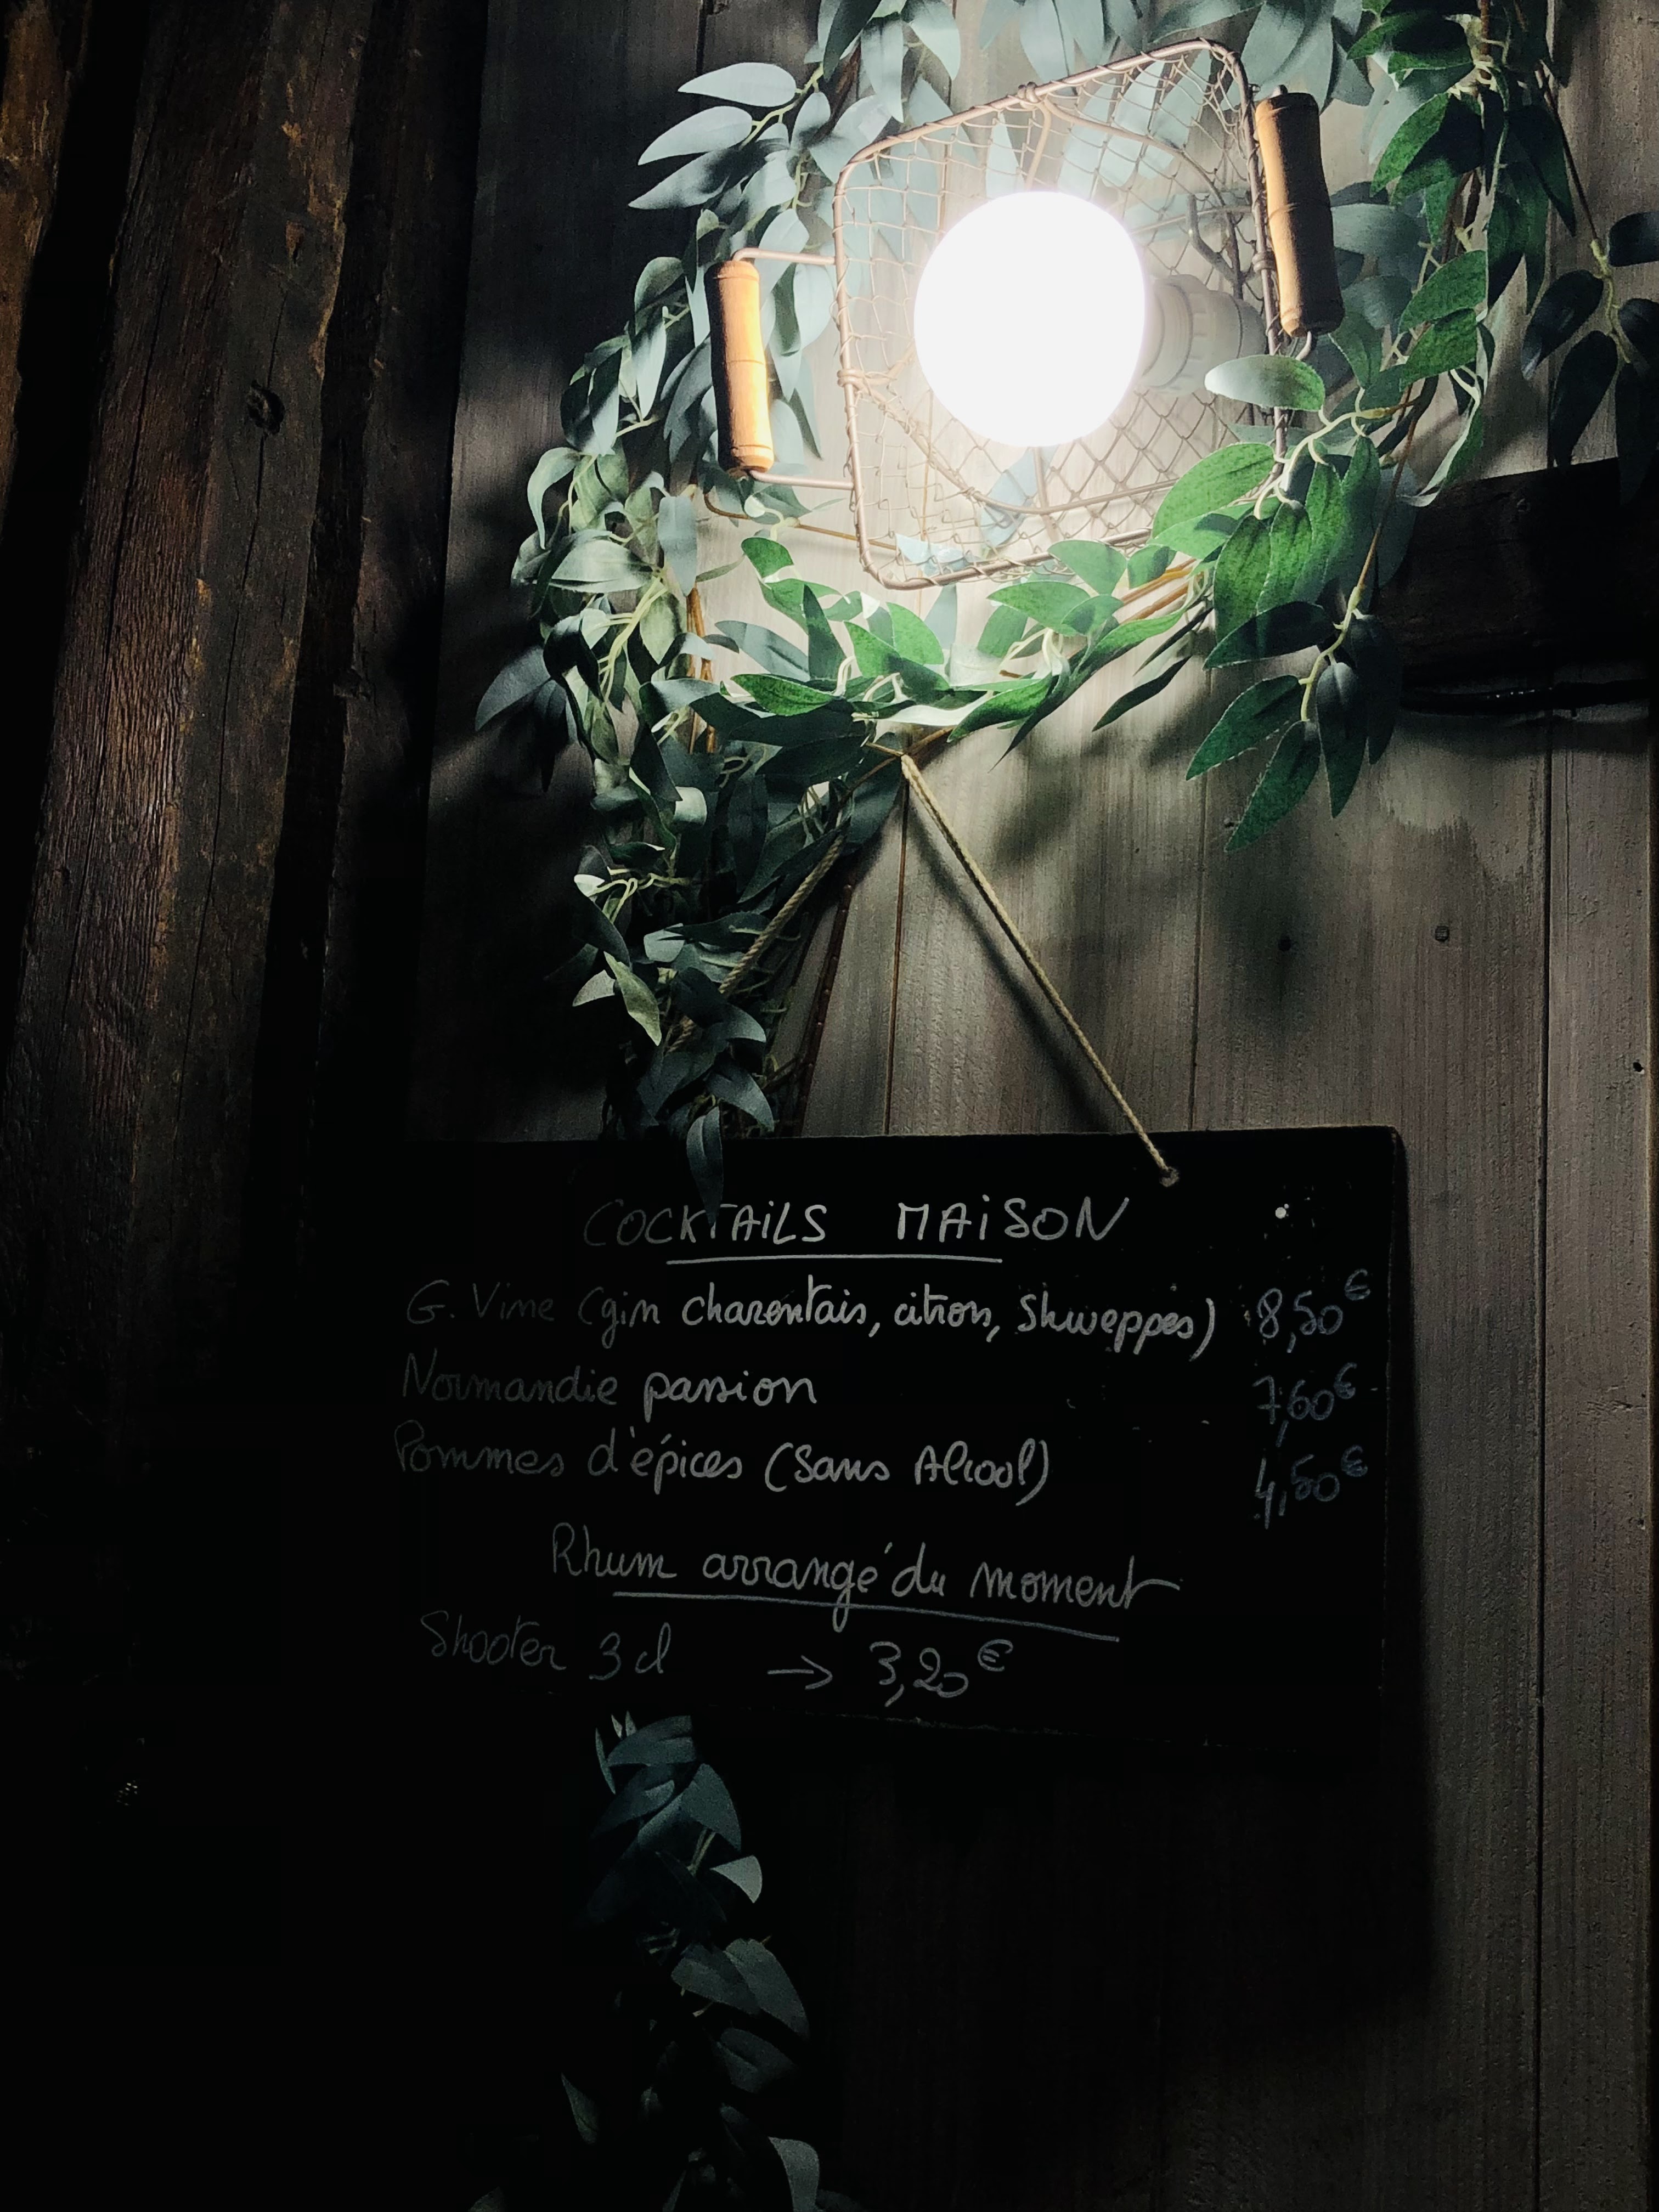 COCKTAiLS MAiSON
G.Vine (gin charentais, citron, Shweppes) 8,50€
Normandie passion 7,60€
Pommes d'épices (Sans Alcool) 4,50€
Rhum arrangé du moment
Shooter 3 cl → 3,20€